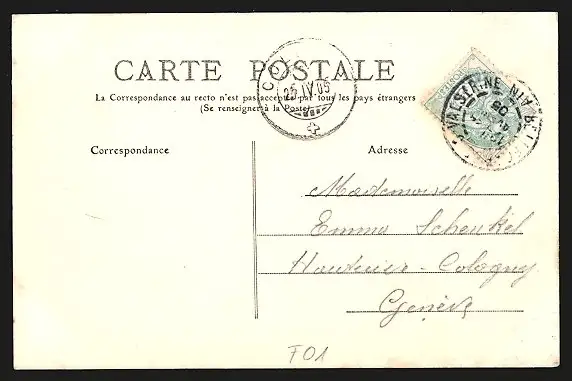 CARTE POSTALE
La Correspondance au recto n'est pas acceptée par tous les pays étrangers
(Se renseigner à la Poste)
25.IV.05
Correspondance
Adresse
Mademoiselle
Emma Schenkel
Cologny
Genève
F01